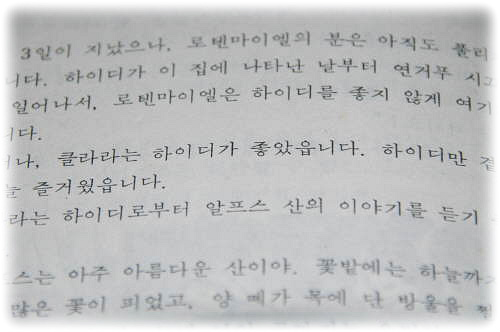 3일이 지났으나, 로텐마이엘의 분은 아직도 풀리
니다. 하이디가 이 집에 나타난 날부터 연거푸
일어나서, 로텐마이엘은 하이디를 좋지 않게 여기
니다.
나, 클라라는 하이디가 좋았읍니다. 하이디만
즐거웠읍니다.
라는 하이디로부터 알프스 산의 이야기를 듣기
스는 아주 아름다운 산이야. 꽃밭에는 하늘까
많은 꽃이 피었고, 양 떼가 목에 단 방울을